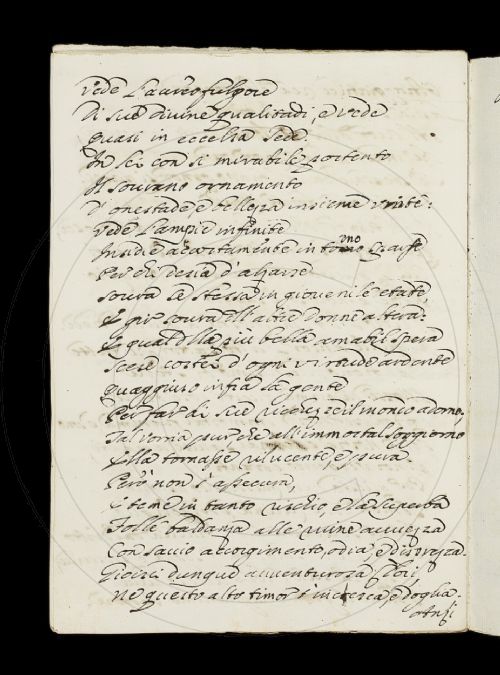 Vede l'aureo fulgore
Di sue divine qualitadi, e vede
Quasi in eccelsa sede
In lei con sì mirabile portento
Il sovrano ornamento
D'onestade, e bellezza insieme unite:
Vede l'ampie infinite
Insidie accortamente intorno
Per chi desia d'alzarse
Sovra se stessa in giovenile etate,
E gir sovra all'altre Donne altera:
E qual dalla più bella amabil spera
Scese costei d'ogni virtude ardente
Quaggiuso infra la gente
Per far di sue vicchezze il mondo adorno,
Tal vorria pur, che all'immortal soggiorno
Ella tornasse rilucente, e pura.
Però non s'assecura,
E teme in tanto rischio, e la superba
Folle baldanza alle ruine avvezza
Con savio accorgimento, odia, e disprezza.
Gioisci dunque avventurosa Clori,
Ne questo alto timor t'incresca, e doglia.
Anzi